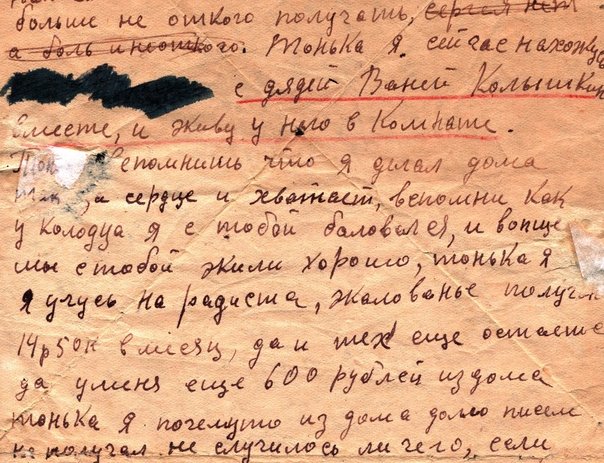 больше не откого получать, сергея нет
а боль и неоткого. Тонька я сейчас нахожусь
с дядей Ваней Колышкин
вместе, и живу у него в комнате.
Тон вспомнишь что я делал дома
так, а сердце и хватает, вспомни как
у колодца я с тобой баловался, и вопще
мы с тобой жили хорошо, тонька я
я учусь на радиста, жалованье получ
14р 50к в месяц, да и тех еще остает
да уменя еще 600 рублей из дома
тонька я почемуто из дома долго писем
не получал не случилось ли чего, если